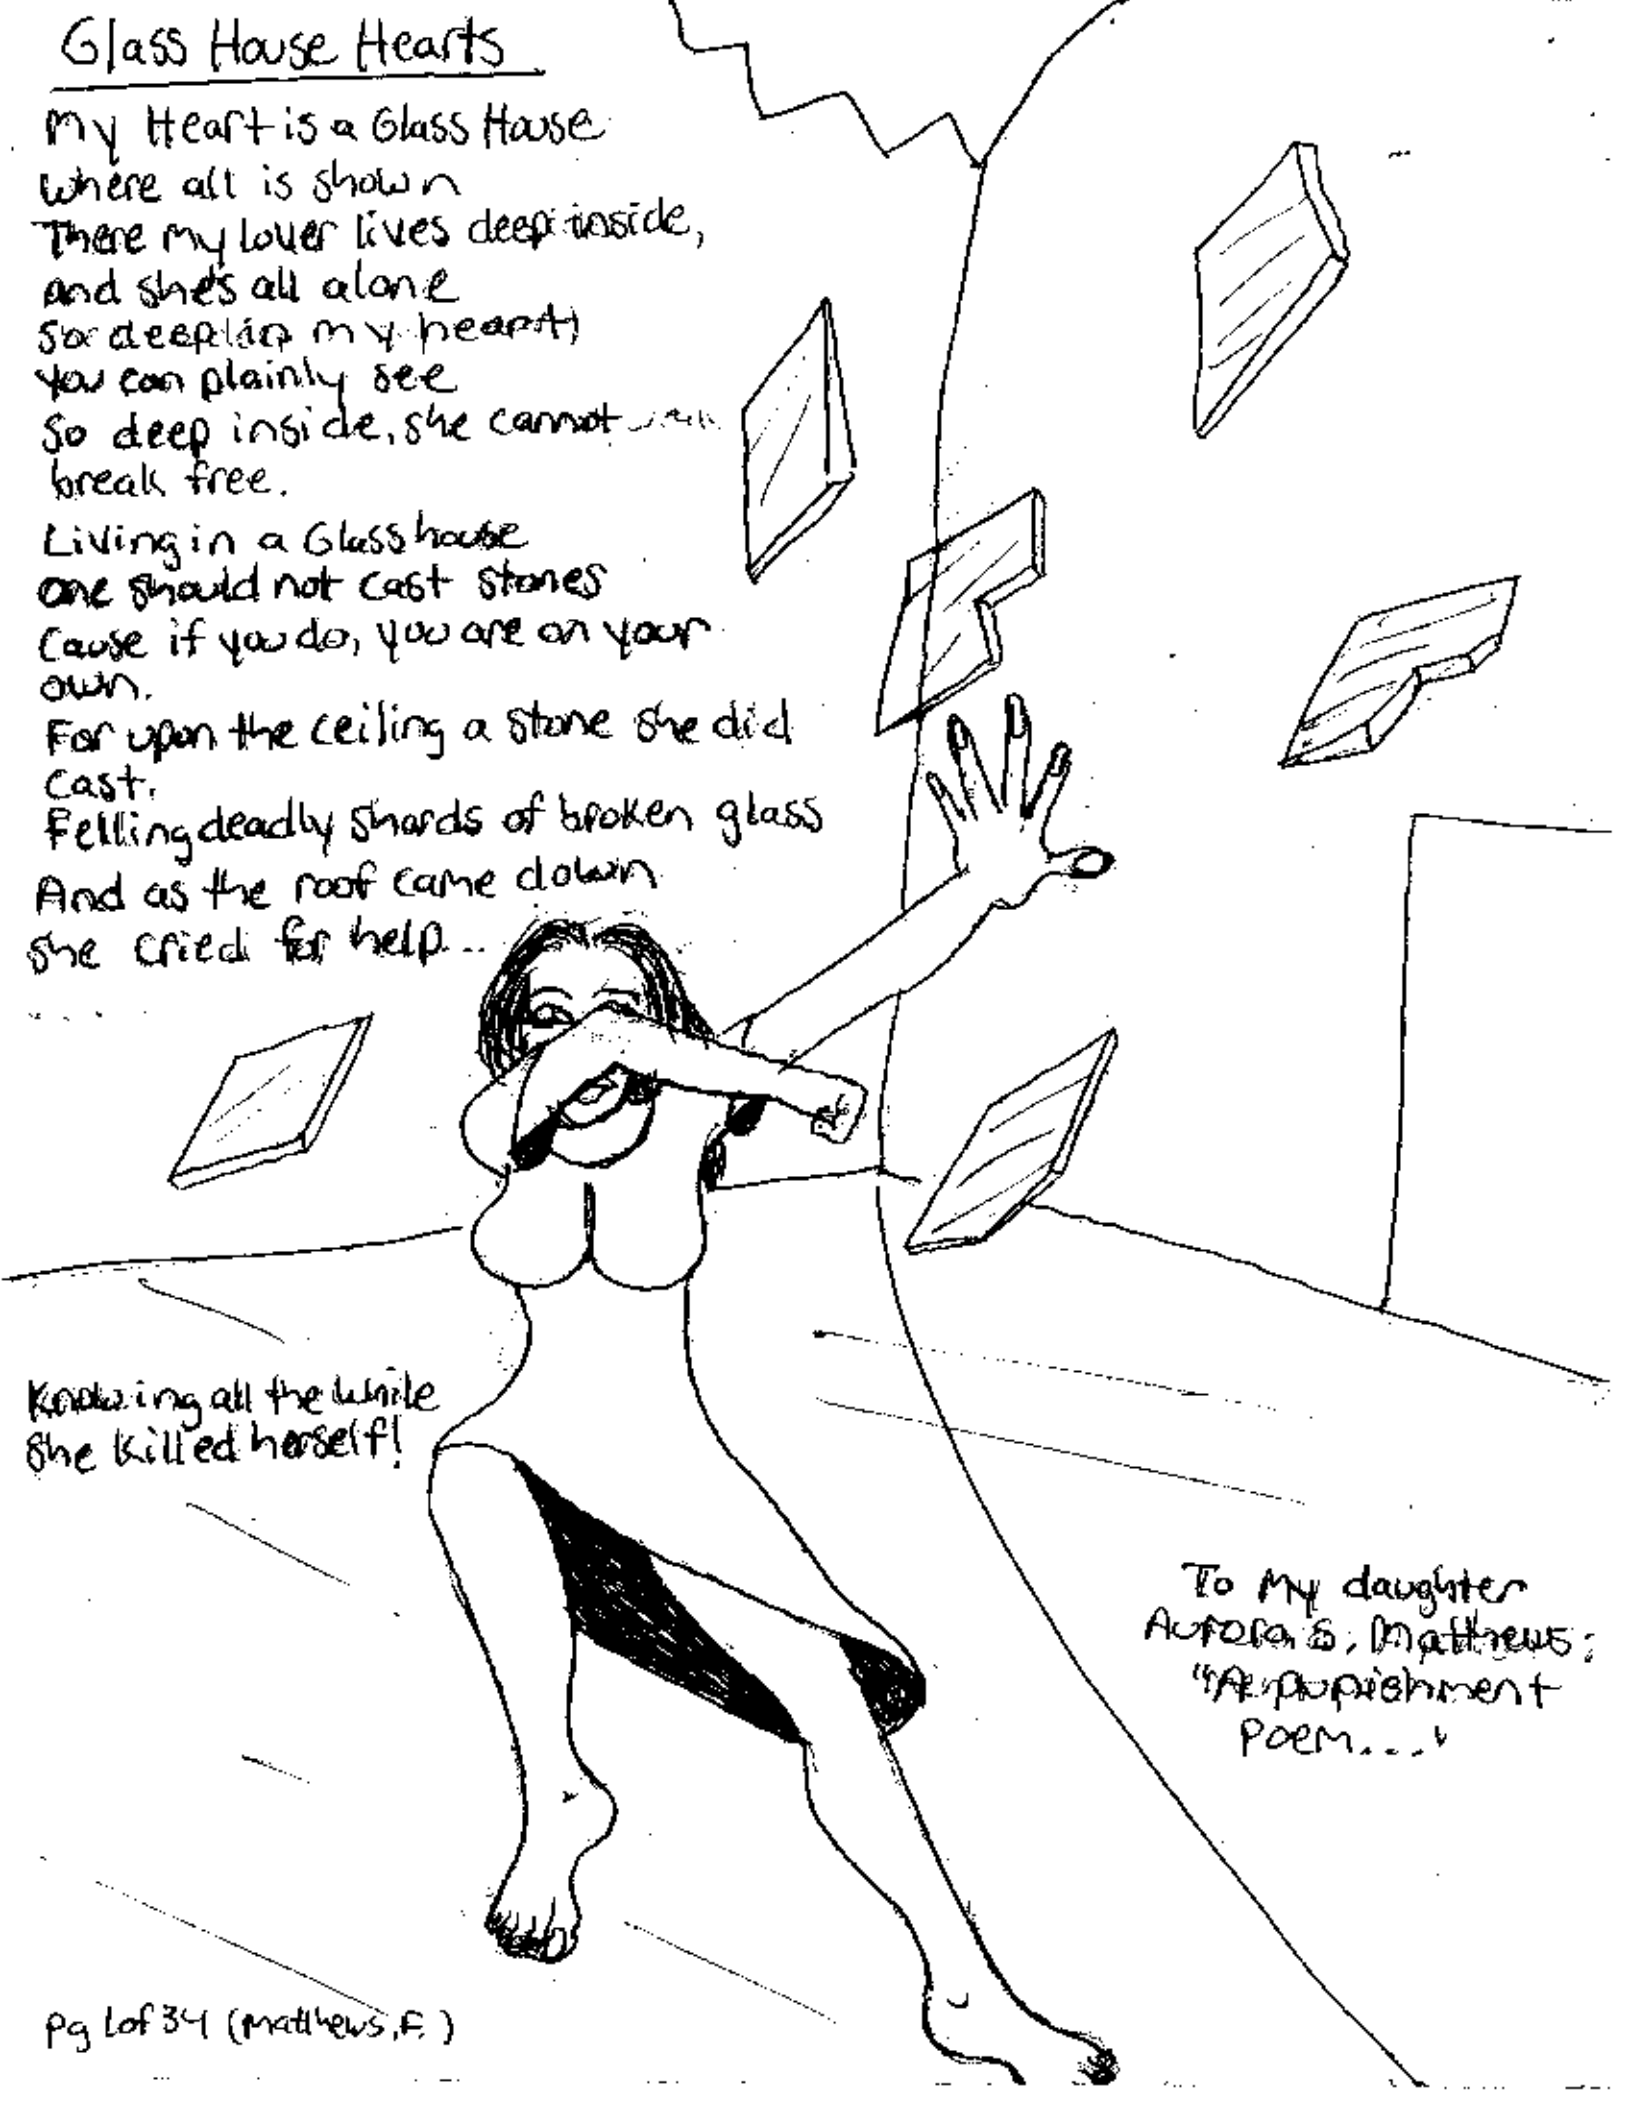 Glass House Hearts
My Heart is a Glass House
where all is shown
There my lover lives deep inside,
and she's all alone
So deep in my heart,
you can plainly see
So deep inside, she cannot
break free.
Living in a Glass house
one should not cast stones
Cause if you do, you are on your
own.
For upon the ceiling a stone she did
cast.
Felling deadly shards of broken glass
And as the roof came down
she cried for help...
Knowing all the while
she killed herself!
To My daughter
Aurora S. Matthews:
"A punishment
poem...."
pg 1 of 34 (Matthews, F.)